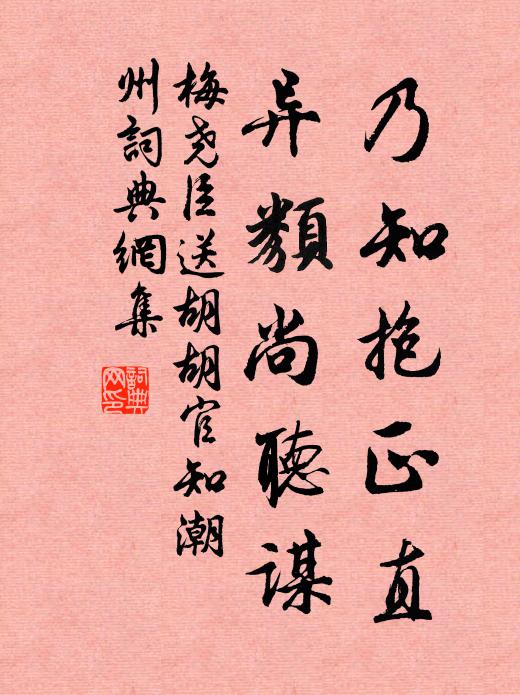 乃知抱正直
异類尚聽謀
梅尧臣送胡胡官知潮
州詞典網集
詞典網印